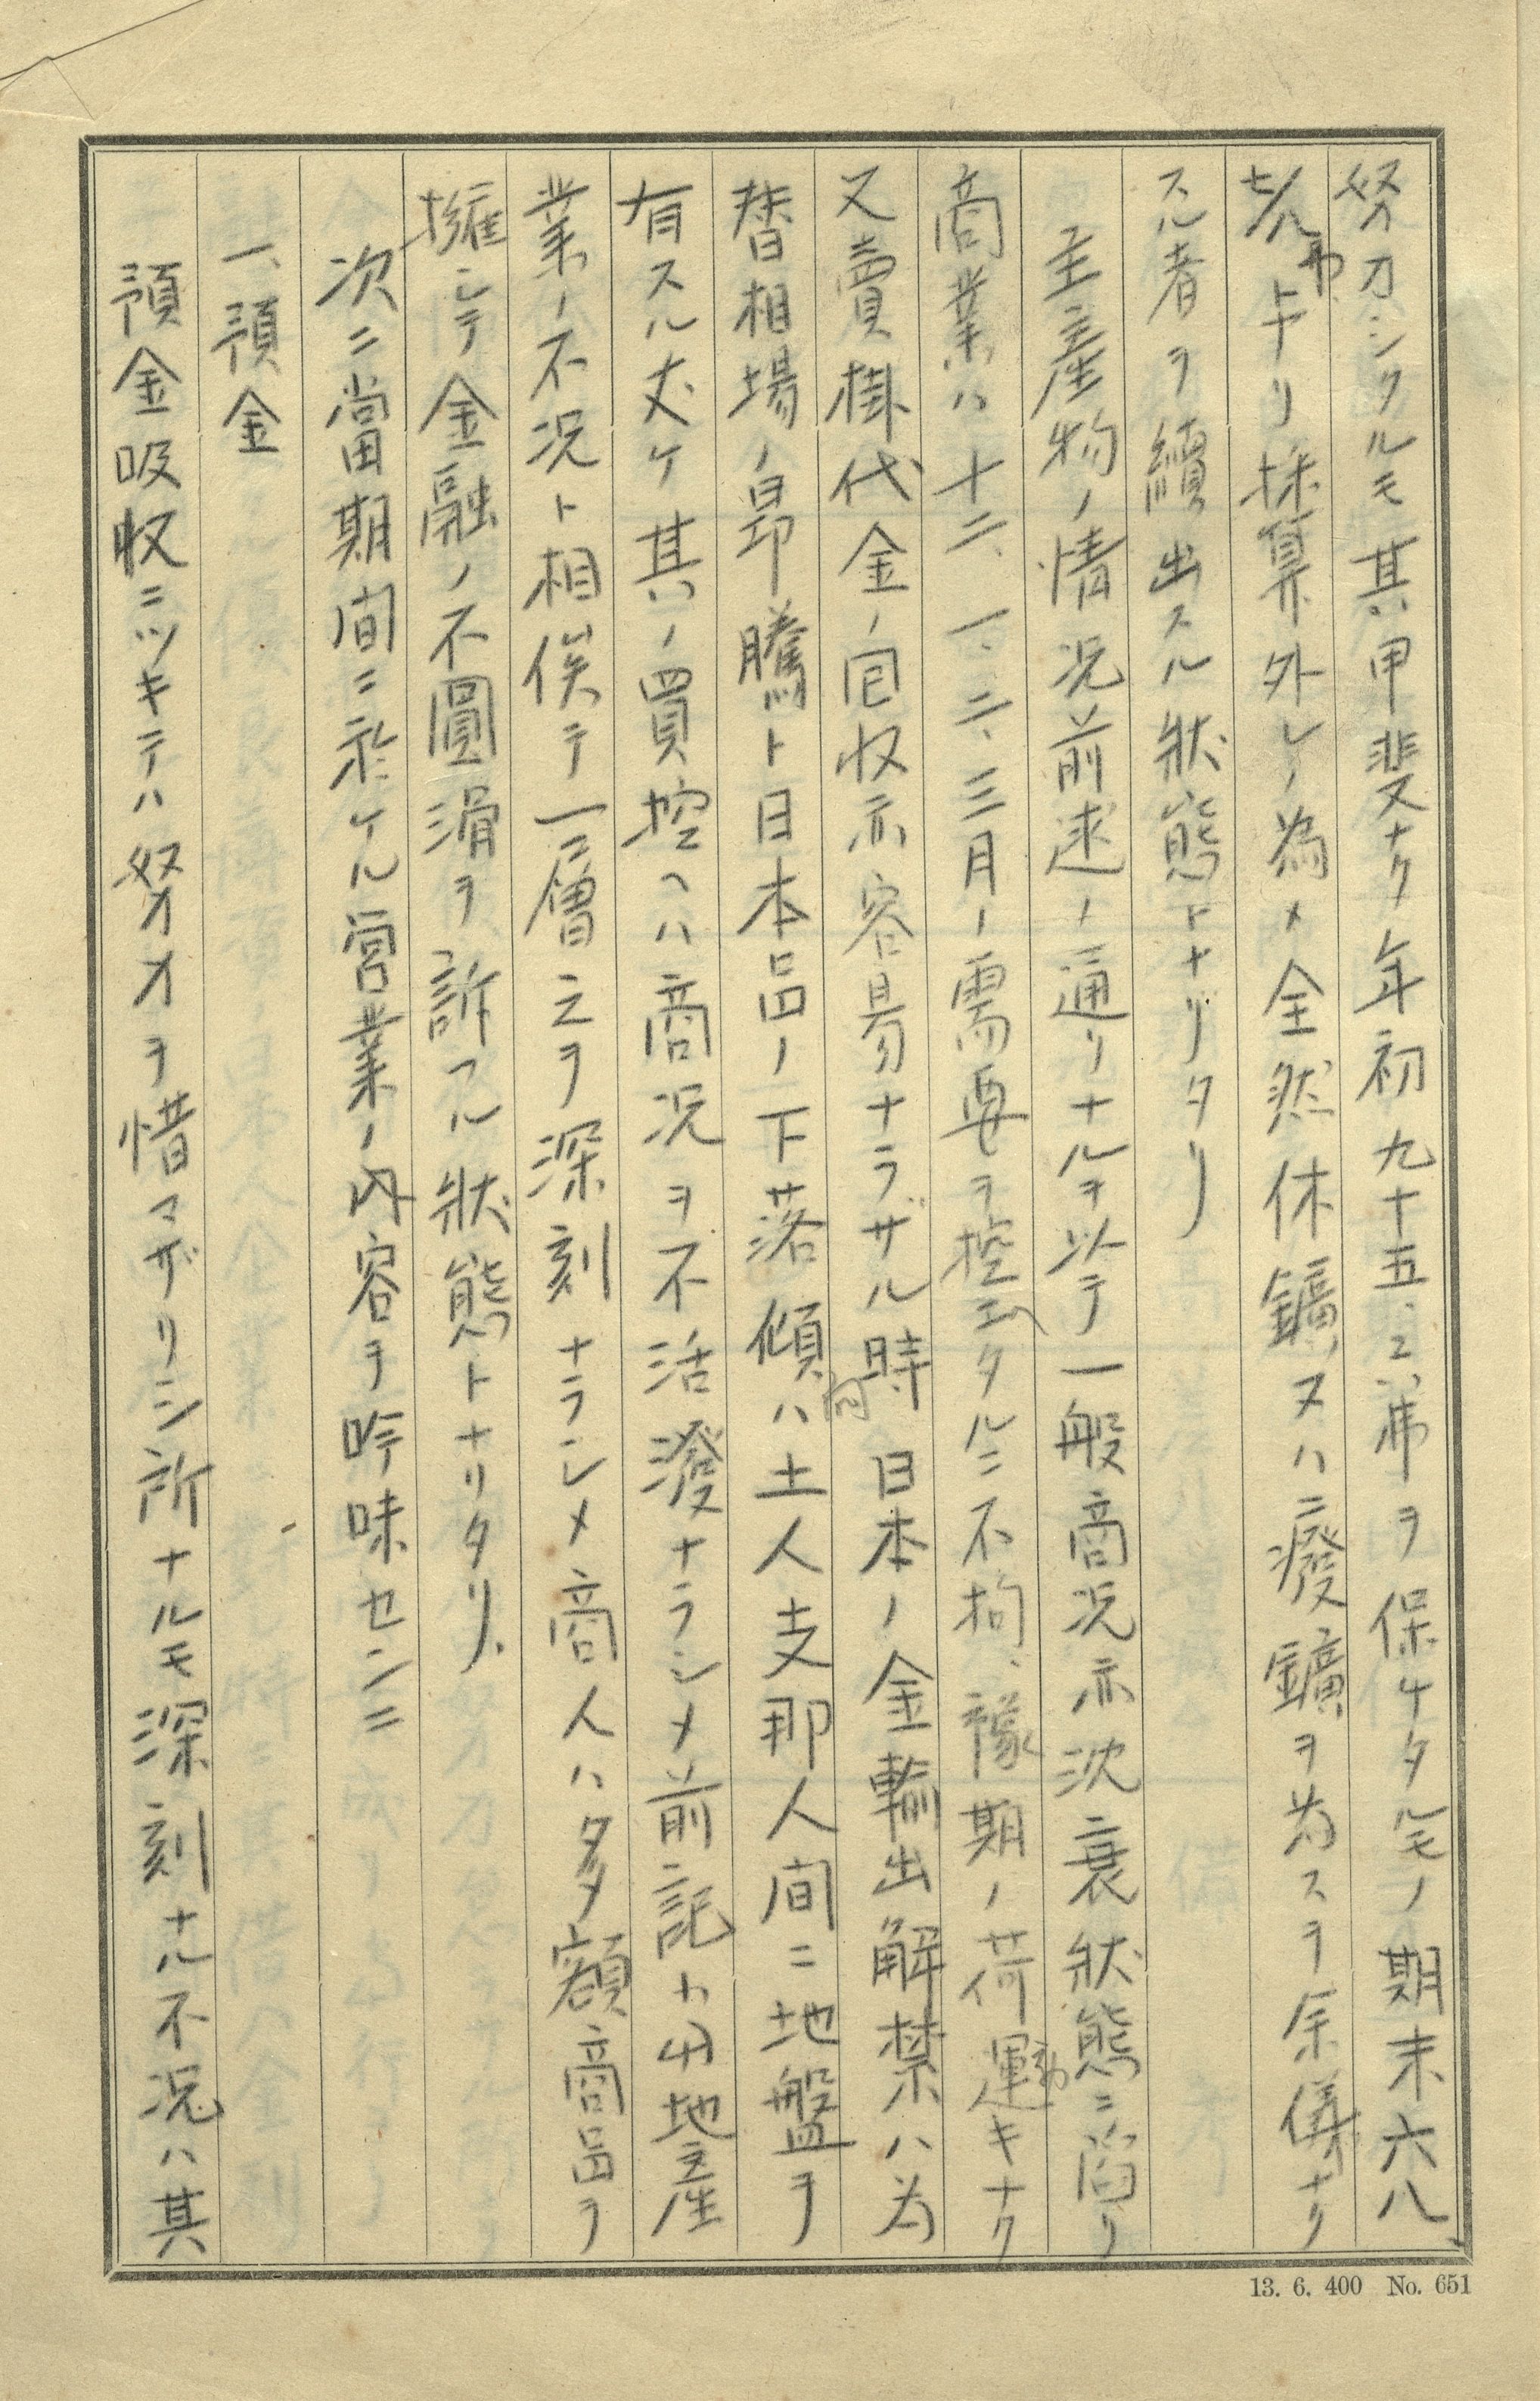 努力シタルモ其甲斐ナク年初九十五、二五弗ヲ保ケタルモノ期末六八、
七八弗トナリ採算外レノ為メ全然休鑛又ハ癈鑛ヲ為スヲ余儀ナク
スル者ヲ續出スル狀態トナリタリ
主産物ノ情況前述ノ通リナルヲ以テ一般商況亦沈衰狀態ニ陷リ
商業ハ十二、一、二、三月ノ需要ヲ控エタルニ不拘、豫期ノ荷動キナク
又賣掛代金ノ回收亦容易ナラザル時日本ノ金輸出解禁ハ為
替相場ノ昻騰ト日本品ノ下落傾向ハ土人支那人間ニ地盤ヲ
有スル丈ケ其ノ買控ヘハ商況ヲ不活潑ナラシメ前記ト当地産
業ノ不況ト相俟テ一層之ヲ深刻ナラシメ商人ハ多額商品ヲ
擁シテ金融ノ不圓滑ヲ訴フル狀態トナリタリ、
次ニ當期間ニ於ケル営業ノ內容ヲ吟味センニ
一、預金
預金吸收ニツキテハ努力ヲ惜マザリシ所ナルモ深刻ナル不況ハ其
13. 6. 400 No. 651